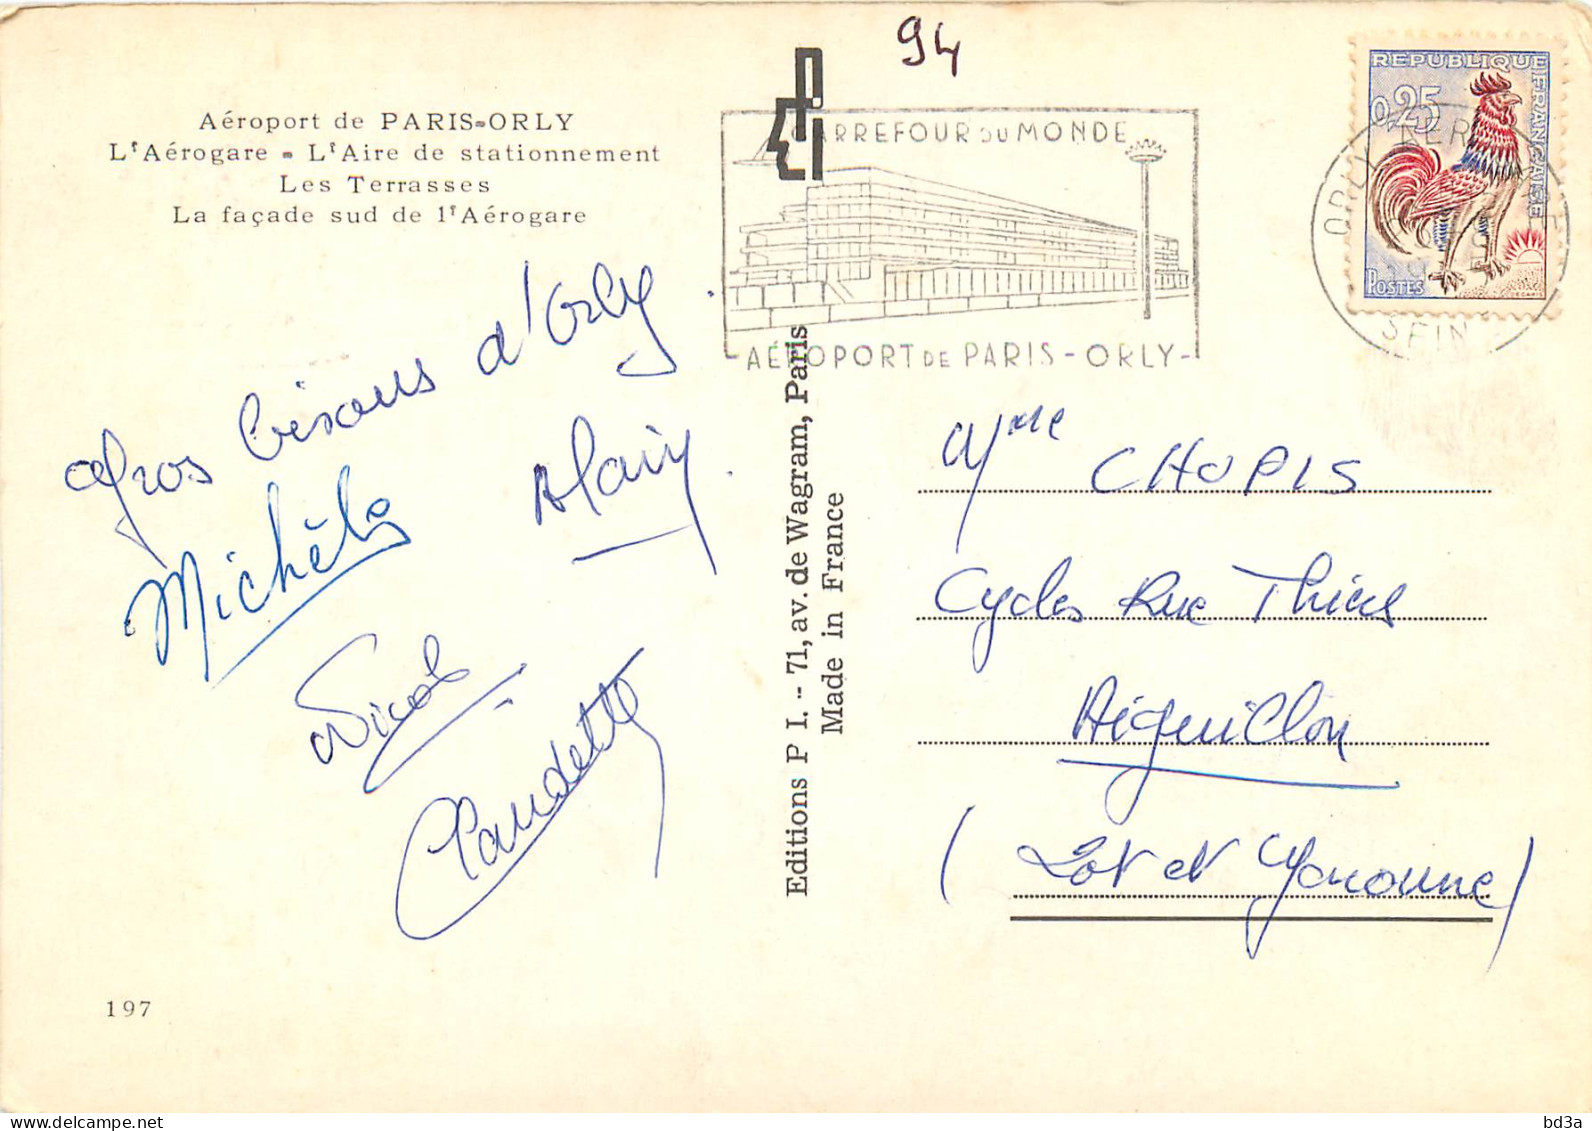 94
Aéroport de PARIS-ORLY
L'Aérogare - L'Aire de stationnement
Les Terrasses
La façade sud de l'Aérogare
CARREFOUR DU MONDE
AÉROPORT DE PARIS - ORLY -
REPUBLIQUE FRANÇAISE
0,25
POSTES
ORLY AEROGARE
SEINE
Gros bisous d'Orly
Alain
Michèle
Nicole
Claudette
Editions P I. - 71, av. de Wagram, Paris
Made in France
Mme CHOPIS
Cycles Rue Thiers
Aiguillon
(Lot et Garonne)
197
bd3a